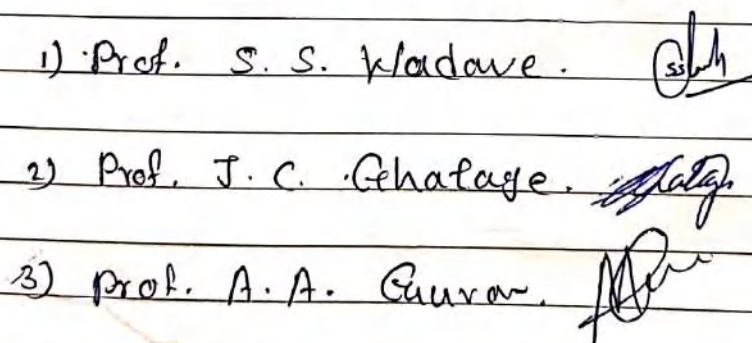 1) Prof. S. S. Kadave.
2) Prof. J. C. Ghatage.
3) Prof. A. A. Gurav.